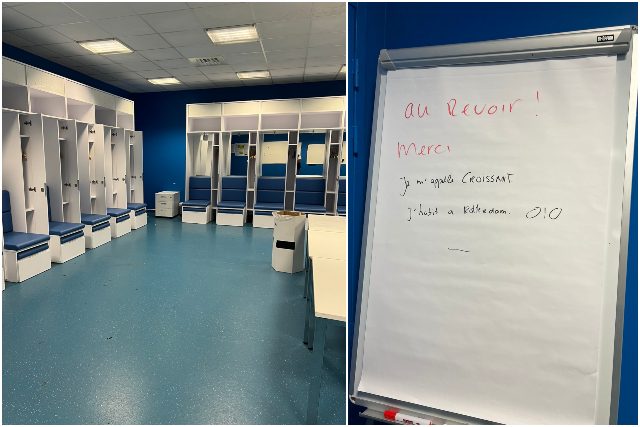 au Revoir!
Merci
Je m'appelle CROISSANT.
J'habit a Rotterdam. 010